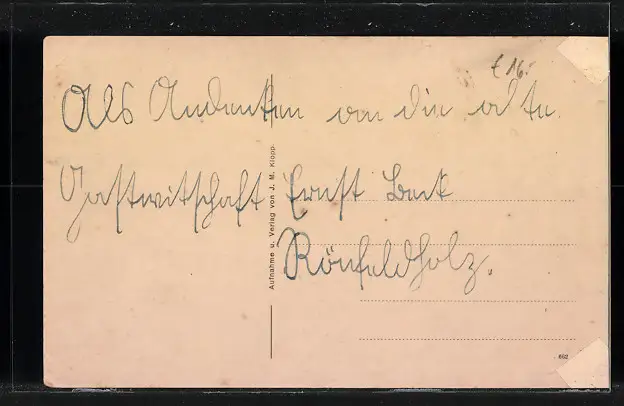 € 16.-
Als Andenken an die alte
Gastwirtschaft Ernst Beck
Rönfeldholz.
Aufnahme u. Verlag von J. M. Klopp.
662